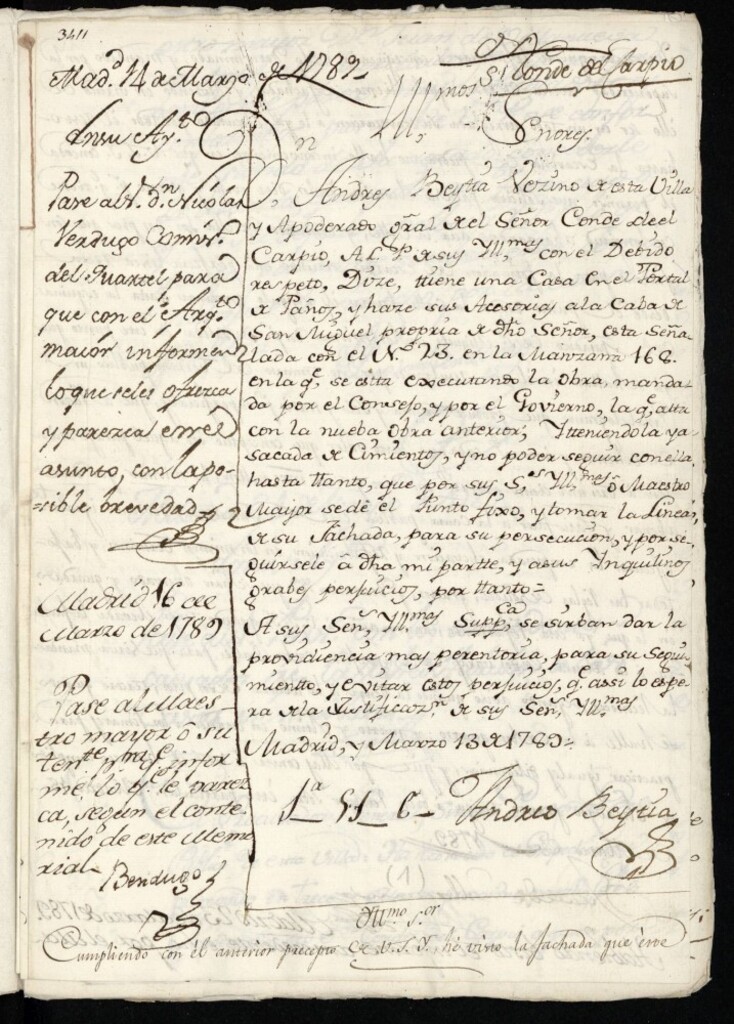 3411
Mad.d 14 de Marzo de 1789
En su Ay.to
Pase al S. d.n Nicolas
Verdugo Comis.o
del Quartel para
que con el Arq.to
maior informen
lo que se les ofrezca
y parezca en el
asunto, con la po-
=sible brevedad
Madrid 16 de
Marzo de 1789
Pase al Maes-
tro mayor ô su
ten.te p.ra q.e infor-
me lo q.e le parez-
ca, segun el conte-
nido de este Memo-
rial
Berdugo
S.r Conde del Carpio
Yll.mos Señores.
D.n Andres Beytia Vezino de esta Villa
y Apoderado gral de el Señor Conde de el
Carpio, A L. P. de sus Yll.mas con el Debido
respeto, Dize, tiene una Casa en el Portal
de Paños, y haze sus Acesorias a la Caba de
San Miguel propria de dho Señor, esta Seña-
lada con el N.o 23. en la Manzana 168.
en la q.e se esta executando la obra, manda-
da por el Consejo, y por el Govierno, la q.e ata
con la nueba obra anterior, Y teniendola ya
sacada de Cimientos, y no poder seguir con ella
hasta ttanto, que por sus S.es Yll.mas ô Maestro
Mayor se dé el Punto fixo, y tomar la Linea,
de su Fachada, para su persecucion, y por se-
guirsele â dha mi partte, y a sus Ynquilinos
grabes perjuicios, por ttanto=
A sus Señ.s Yll.mas Supp.ca se sirban dar la
providiencia mas perentoria, para su Segui-
miento, y evitar estos perjuicios, q.e assi lo espe-
ra de la Justificaz.n de sus Señ.s Yll.mas
Madrid, y Marzo 13 de 1789=
Andres Beytia
Yll.mo S.or
Cumpliendo con el anterior precepto de V.S.Y. he visto la fachada que